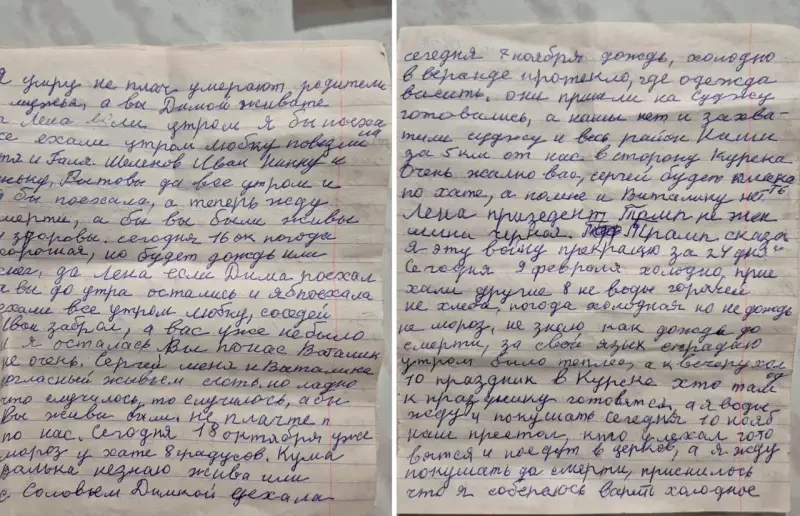 я умру не плач умерают родители
мужья, а вы Димой живате
Лена если утром я бы поеха
се ехали утром любку повезли
тя и Галя Шеленов Иван нинку и
ньку, да все утром и
я бы поехала, а теперь жду
мерти, а бы вы были живы
и здоровы. сегодня 16 ок погода
хорошая, но будет дождь или
снег, да Лена если Дима поехал
а вы до утра остались и я б поехала
ехали все утром любку, соседей
Иван забрал, а вас уже не было
и я осталась Вы по нас Виталик
не очень. Сергей меня и Виталика
огласный живьем сесть, но ладно
что случилось, то случилось, абы
Вы живы были. не плачте п
по нас. Сегодня 18 октября уже
мороз у хате 8 градусов. Кума
валька незнаю жива или
с Соловьем Димкой уехала
сегодня 7 ноября дождь, холодно
в веранде протекло, где одежда
висить. они пришли на Суджу
готовились, а наших нет и захва-
тили суджу и весь район
за 5 км от нас в сторону Курска
Очень жалко вас, сергей будет плака
ть
по хате, а по мне и Виталику не
Лена призедент Трамп не жен
щина черная. Трамп. сказа
я эту войну прекращю за 24 дня
Сегодня 9 февроля холодно, прие
хали другие 8 не воды горячей
не хлеба, погода холодная но не дождь
не мороз, не знаю как дожить до
смерти, за свой язык страдаю
утром было теплее, а к вечеру хол
од
10 праздник в Курске хто там
к празднику готовятся, а я воды
жду и покушать Сегодня 10 нояб
наш престол, кто уехал гото
вится и поедут в церков, а я жду
покушать да смерти, приснилось
что я собераюсь варить холодное